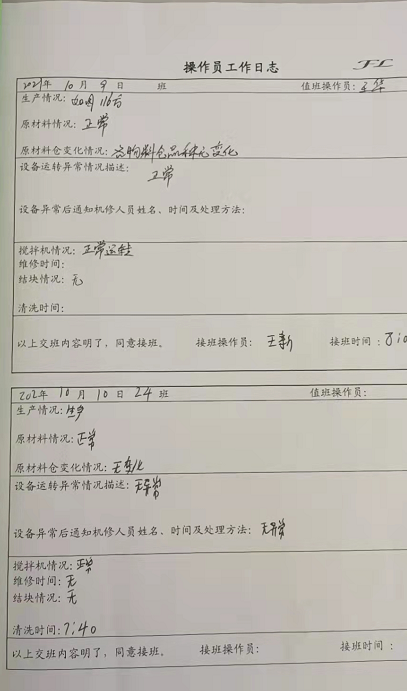 操作员工作日志
2021年 10月 9日 班 值班操作员：王华
生产情况：
原材料情况：正常
原材料仓变化情况：各物料仓品种无变化
设备运转异常情况描述：
正常
设备异常后通知机修人员姓名、时间及处理方法：
搅拌机情况：正常运转
维修时间：
结块情况：无
清洗时间：
以上交班内容明了，同意接班。 接班操作员：王新 接班时间：
202年 10月 10日 24班 值班操作员：
生产情况：
原材料情况：正常
原材料仓变化情况：无变化
设备运转异常情况描述：无异常
设备异常后通知机修人员姓名、时间及处理方法：无异常
搅拌机情况：正常
维修时间：无
结块情况：无
清洗时间：7:40
以上交班内容明了，同意接班。 接班操作员： 接班时间：